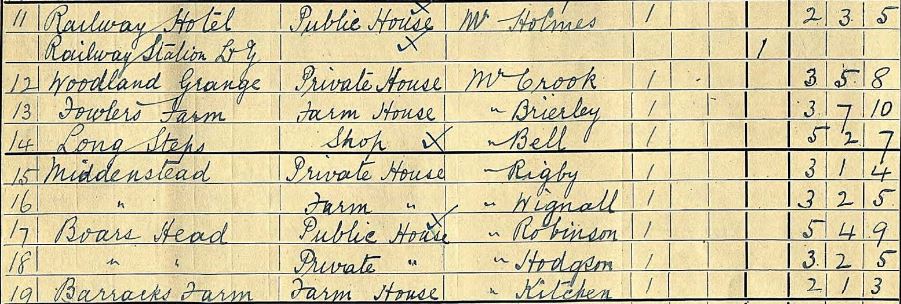 11 Railway Hotel Public House Mr Holmes 1 2 3 5
Railway Station L & Y 1
12 Woodland Grange Private House Mr Crook 1 3 5 8
13 Fowlers Farm Farm House " Brierley 1 3 7 10
14 Long Steps Shop " Bell 1 5 2 7
15 Middenstead Private House " Rigby 1 3 1 4
16 " Farm " " Wignall 1 3 2 5
17 Boars Head Public House " Robinson 1 5 4 9
18 " " Private " " Hodgson 1 3 2 5
19 Barracks Farm Farm House " Kitchen 1 2 1 3